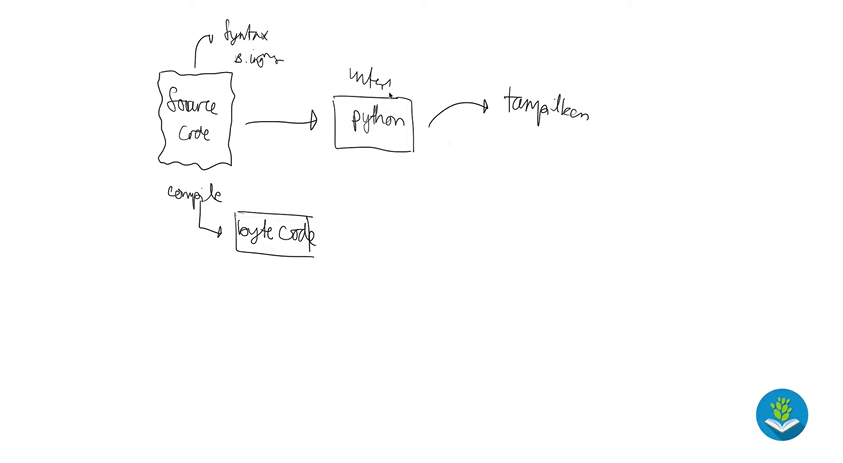 Syntax
B. inggris
Source
code
inter
python
tampilkan
compile
byte code